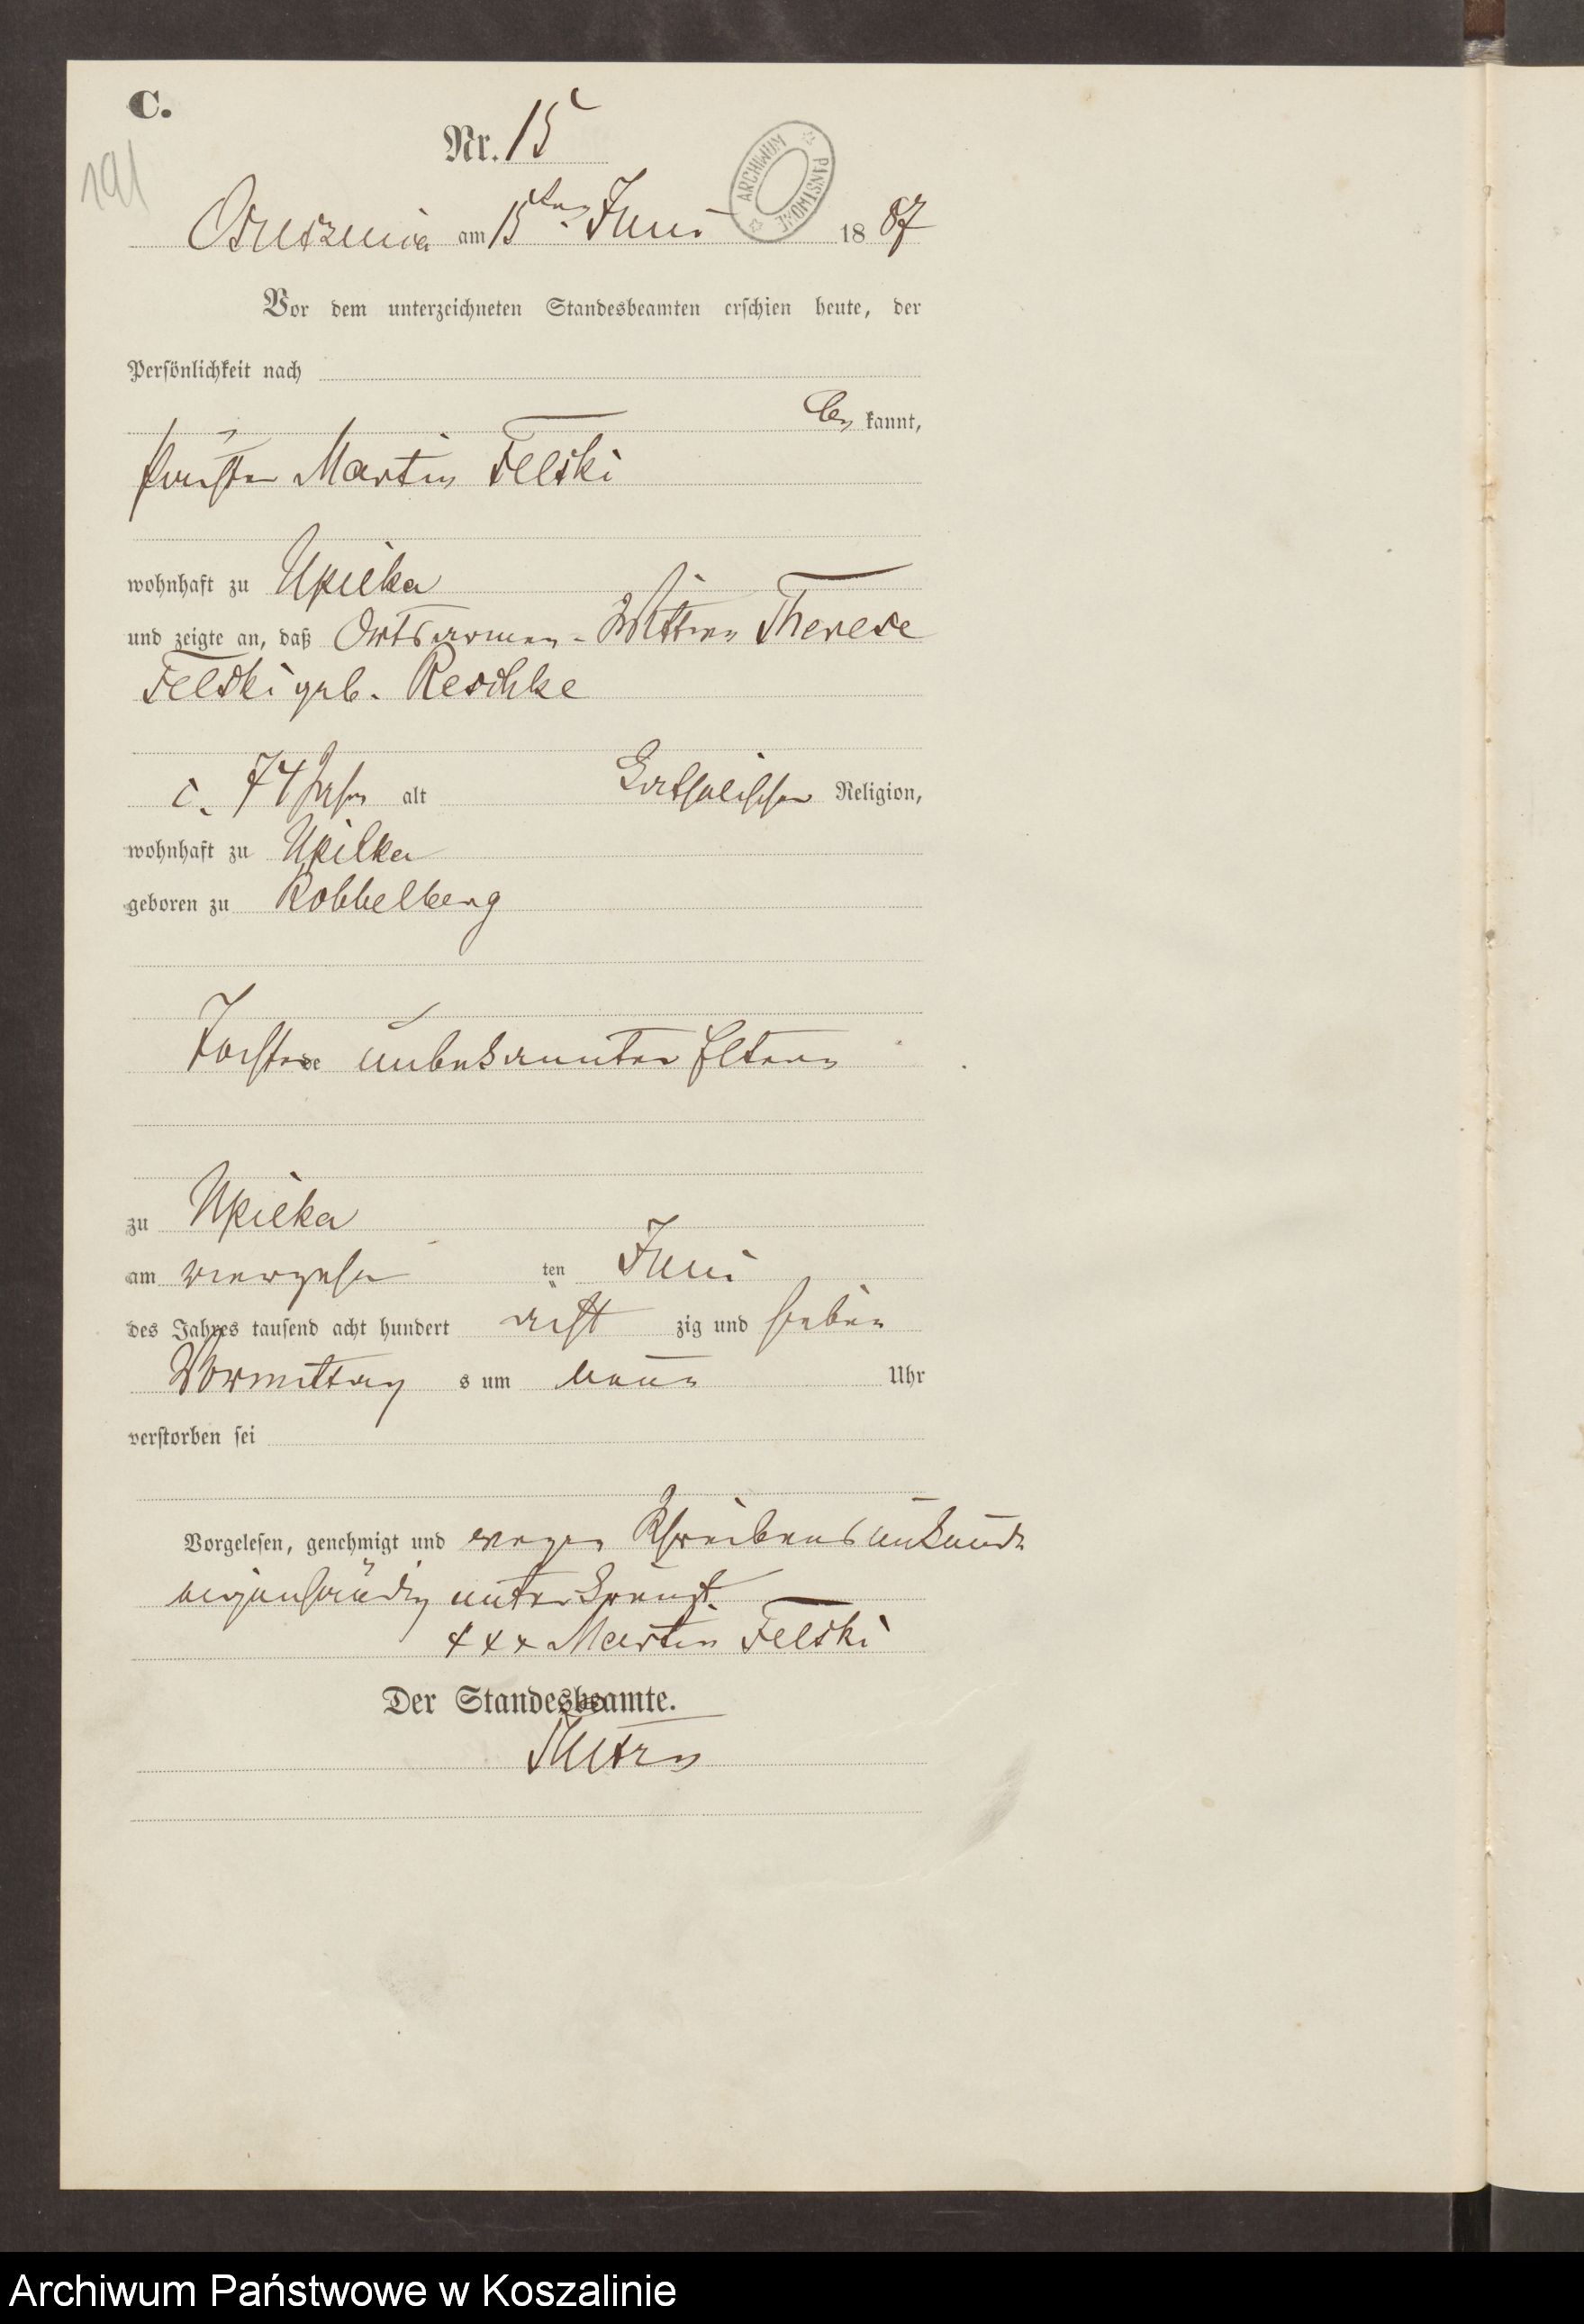 C.
191
Nr. 15
ARCHIWUM PAŃSTWOWE
Osuszniza am 15ten Juni 1887
Vor dem unterzeichneten Standesbeamten erschien heute, der
Persönlichkeit nach
be kannt,
Martin Felski
wohnhaft zu Upilka
und zeigte an, daß Ortsarmen-Wittwe Therese
Felski geb. Reschke
c. 74 Jahr alt katholischer Religion,
wohnhaft zu Upilka
geboren zu Robbelberg
Tochter unbekannter Eltern
zu Upilka
am vierzehn ten Juni
des Jahres tausend acht hundert acht zig und sieben
Vormittag s um neun Uhr
verstorben sei
Vorgelesen, genehmigt und wegen Schreibensunkunde
eigenhändig unterkreuzt.
xxx Martin Felski
Der Standesbeamte.
Archiwum Państwowe w Koszalinie